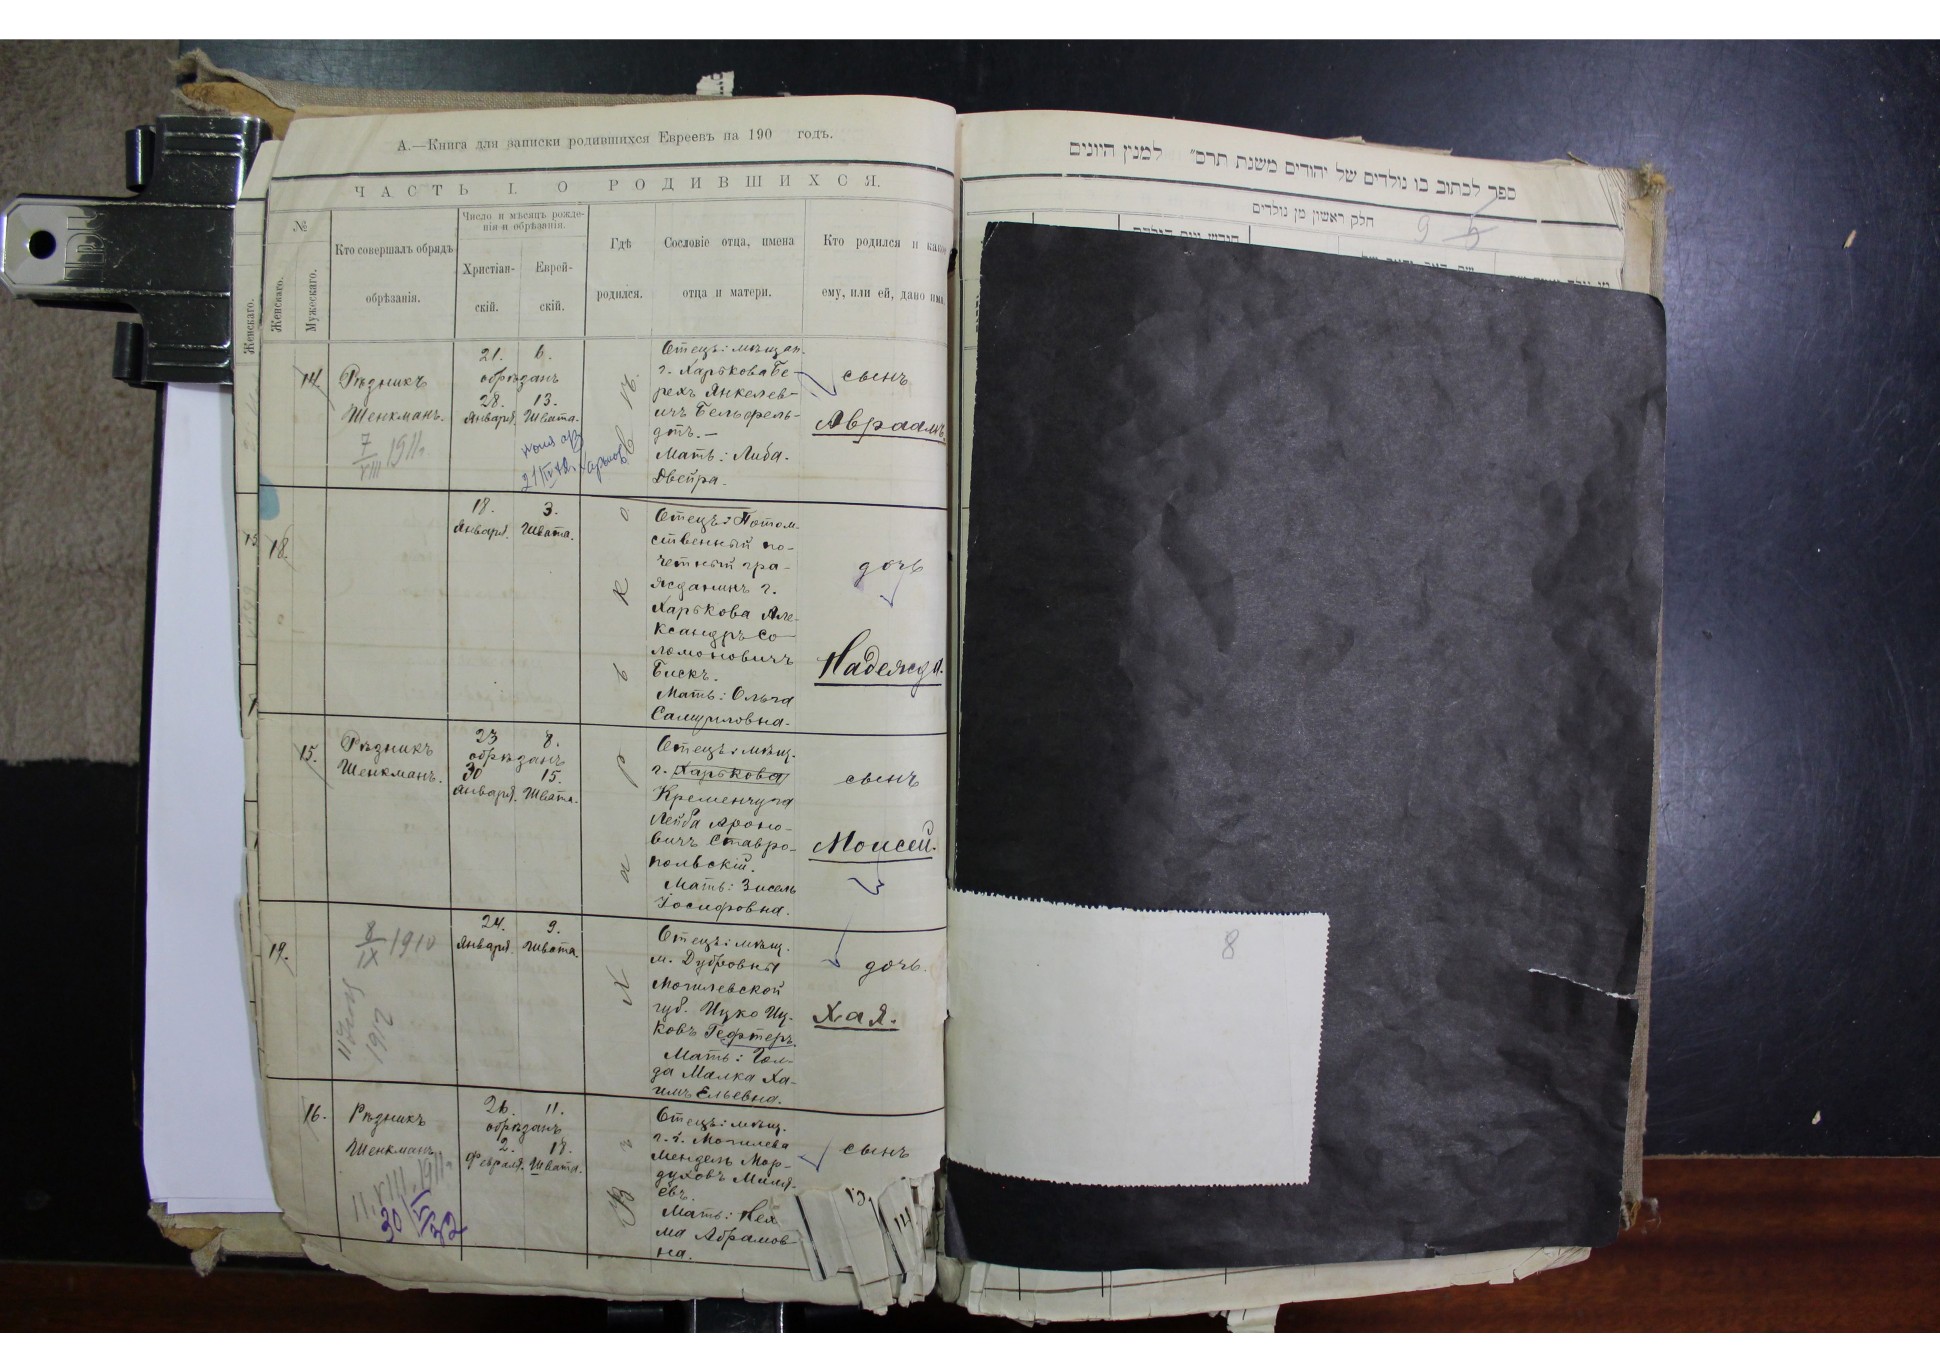 А.—Книга для записки родившихся Евреевъ на 190 годъ.
ЧАСТЬ I. О РОДИВШИХСЯ.
№
Женскаго.
Женскаго.
Мужескаго.
Кто совершалъ обрядъ
обрѣзанія.
Число и мѣсяцъ рожде-
нія и обрѣзанія.
Христіан-
скій.
Еврей-
скій.
Гдѣ
родился.
Сословіе отца, имена
отца и матери.
Кто родился и како
ему, или ей, дано имя
14
Рѣзникъ
Шенкманъ.
7/VIII 1911
21. 6.
обрѣзанъ
28. 13.
Января Швата.
21/IV
Отецъ: мѣщан.
г. Харькова Бе-
рехъ Янкелев-
ичъ Бельфель-
дтъ.—
Мать: Либа-
Двейра.
сынъ
Авраамъ.
18.
18. 3.
Января. Швата.
Отецъ: Потом-
ственный по-
четный гра-
жданинъ г.
Харькова Але-
ксандръ Со-
ломоновичъ
Бискъ.
Мать: Ольга
Самуиловна.
дочь
Надежда.
15.
Рѣзникъ
Шенкманъ.
23 8.
обрѣзанъ
30 15.
Января. Швата.
Отецъ: мѣщ.
г. Харькова
Кременчуга
Лейба Ароно-
вичъ Ставро-
польскій.
Мать: Зисель
Іосифовна.
сынъ
Моисей.
19.
8/IX 1910
1912
24. 9.
Января Швата.
Отецъ: мѣщ.
м. Дубровны
Могилевской
губ. Ицко Иц-
ковъ Гефтеръ.
Мать: Гол-
да Малка Ха-
имъ Ельевна.
дочь.
Хая.
16.
Рѣзникъ
Шенкманъ
11.VIII.1911
30/VI 32
26. 11.
обрѣзанъ
2. 18.
Февраля. Швата.
Отецъ: мѣщ.
г. Могилева
Мендель Мор-
духовъ
евъ.
Мать: Нех
ма Абрамов
на.
сынъ
Въ Харьковѣ
14
ספר לכתוב בו נולדים של יהודים משנת תרס״ למנין היונים
חלק ראשון מן נולדים
9
6
8